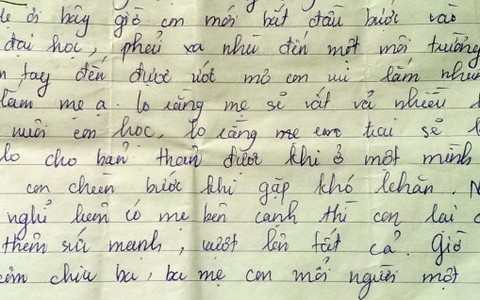 ơi bây giờ con mới bắt đầu bước vào
đại học, phải xa nhà đến một môi trường
tay đến được ước mơ con vui lắm nhưn
lắm mẹ ạ. lo rằng mẹ sẽ vất vả nhiều
nuôi con học, lo rằng mẹ con trai sẽ
lo cho bản thân được khi ở một mình
con chùn bước khi gặp khó khăn.
nghỉ hiên có mẹ bên cạnh thì con lại
thêm sức mạnh, vượt lên tất cả. Giờ
chia ba, bá mẹ con mỗi người một